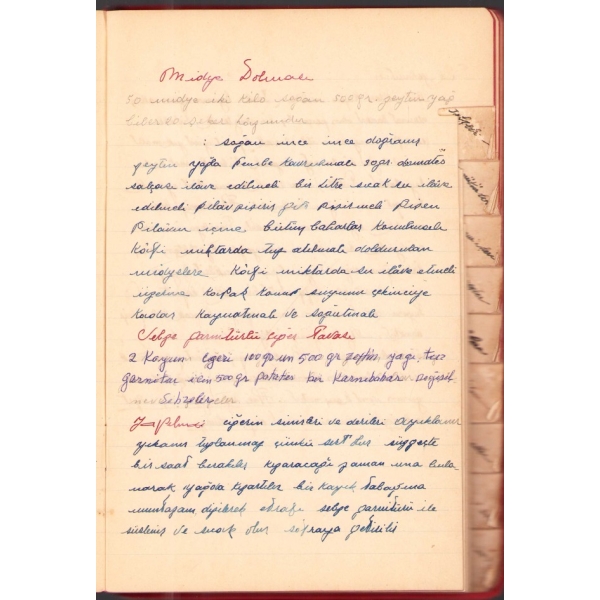 Midye Dolması
50 midye iki kilo soğan 500 gr. zeytin yağ
biber şeker
: soğan ince ince doğranıp
zeytin yağda pembe kavrulmalı 30 gr. domates
salçası ilâve edilmeli bir litre sıcak su ilâve
edilmeli pilâv pişirir gibi pişirmeli pişen
Pilâvın içine bütün baharlar konulmalı
Kâfi miktarda tuz atılmalı doldurulan
midyelere Kâfi miktarda su ilâve etmeli
üzerine Kapak konup suyunu çekinceye
kadar kaynatmalı ve soğutmalı
Sebze garnitürlü ciğer Tavası
2 Koyun ciğeri 100 gr un 500 gr zeytin yağı, tuz
garnitür için 500 gr patates bir Karnıbahar
Sebzeler
Yapılması ciğerin sinirleri ve derileri ayıklanır
yıkanır çünkü sert olur
bir saat bırakılır kızaracağı zaman una bula
narak yağda kızartılır bir kayık tabağına
muntazam dizilerek etrafı sebze garnitürü ile
süslenir ve sıcak olur sofraya getirilir